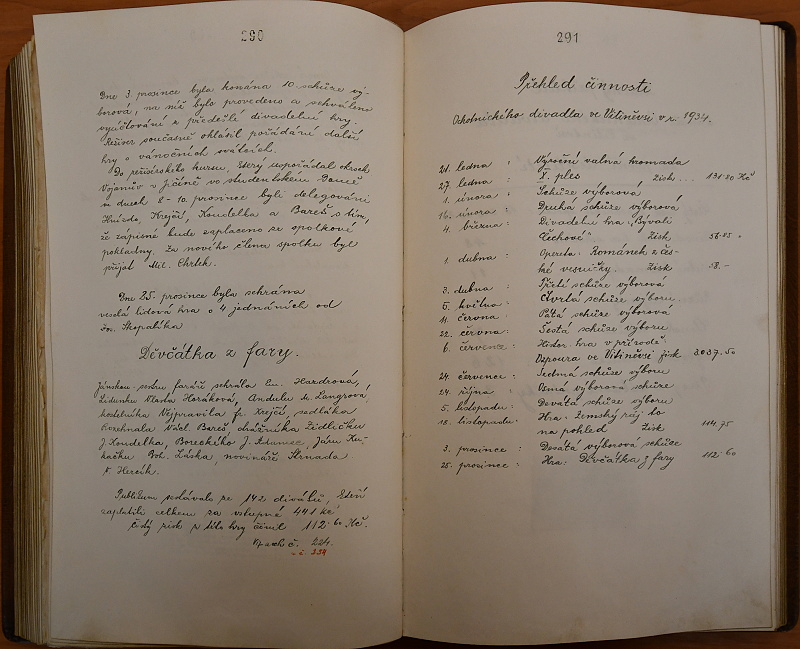 290
Dne 3. prosince byla konána 10. schůze vý-
borová, na níž bylo provedeno a schváleno
vyúčtování z předešlé divadelní hry.
Režiser současně ohlásil pořádání další
hry o vánočních svátcích.
Do režisérského kursu, který uspořádal okrsek
Vojanův v Jičíně ve studentském Domě
v duch 8-10. prosince byli delegováni
Hnízdo, Krejčí, Koudelka a Bareš s tím,
že zápisné bude zaplaceno ze spolkové
pokladny. Za nového člena spolku byl
přijat Mil. Chrtek.
Dne 25. prosince byla sehrána
veselá lidová hra o 4 jednáních od
Jos. Skopalíka
Děvčátka z fary.
Jánskou sestru faráře sehrála Em. Hardrová,
Lidunku Vlasta Horáková, Andulu M. Langrová,
kostelníka Vejpravila fr. Krejčí, sedláka
Rozehnala Vác. Bareš, drážníka Židličku
J. Koudelka, Boreckého J. Adamec, Jánu Ku-
kačku Boh. Láska, novináře Strnada
Hercík.
Publikum sestávalo ze 142 diváků, kteří
zaplatili celkem za vstupné 441 Kč
čistý zisk z této hry činil 112.60 Kč.
č. 224.
č. 234
291
Přehled činnosti
Ochotnického divadla ve Vitiněvsi v r. 1934.
21. ledna : Výroční valná hromada
27. ledna : X. ples Zisk ... 131.80 Kč
1. února : Schůze výborová
16. února : Druhá schůze výborová
4. března : Divadelní hra „Bývali
Čechové" Zisk 56.85 "
1 dubna : Opereta: Románek z čes-
ké vesničky. Zisk 58.-
3. dubna : Třetí schůze výborová
5. května : Čtvrtá schůze výboru.
11. června : Pátá schůze výborová
22. června : Šestá schůze výboru
6. července : Histor. hra v přírodě:
Vzpoura ve Vitiněvsi zisk 3037.50
24. července : Sedmá schůze výboru
24. října : Osmá výborová schůze
5. listopadu : Devátá schůze výboru
18. listopadu : Hra: Zemský ráj to
na pohled Zisk 114.75
3. prosince : Desátá výborová schůze
25. prosince : Hra: Děvčátka z fary 112.60